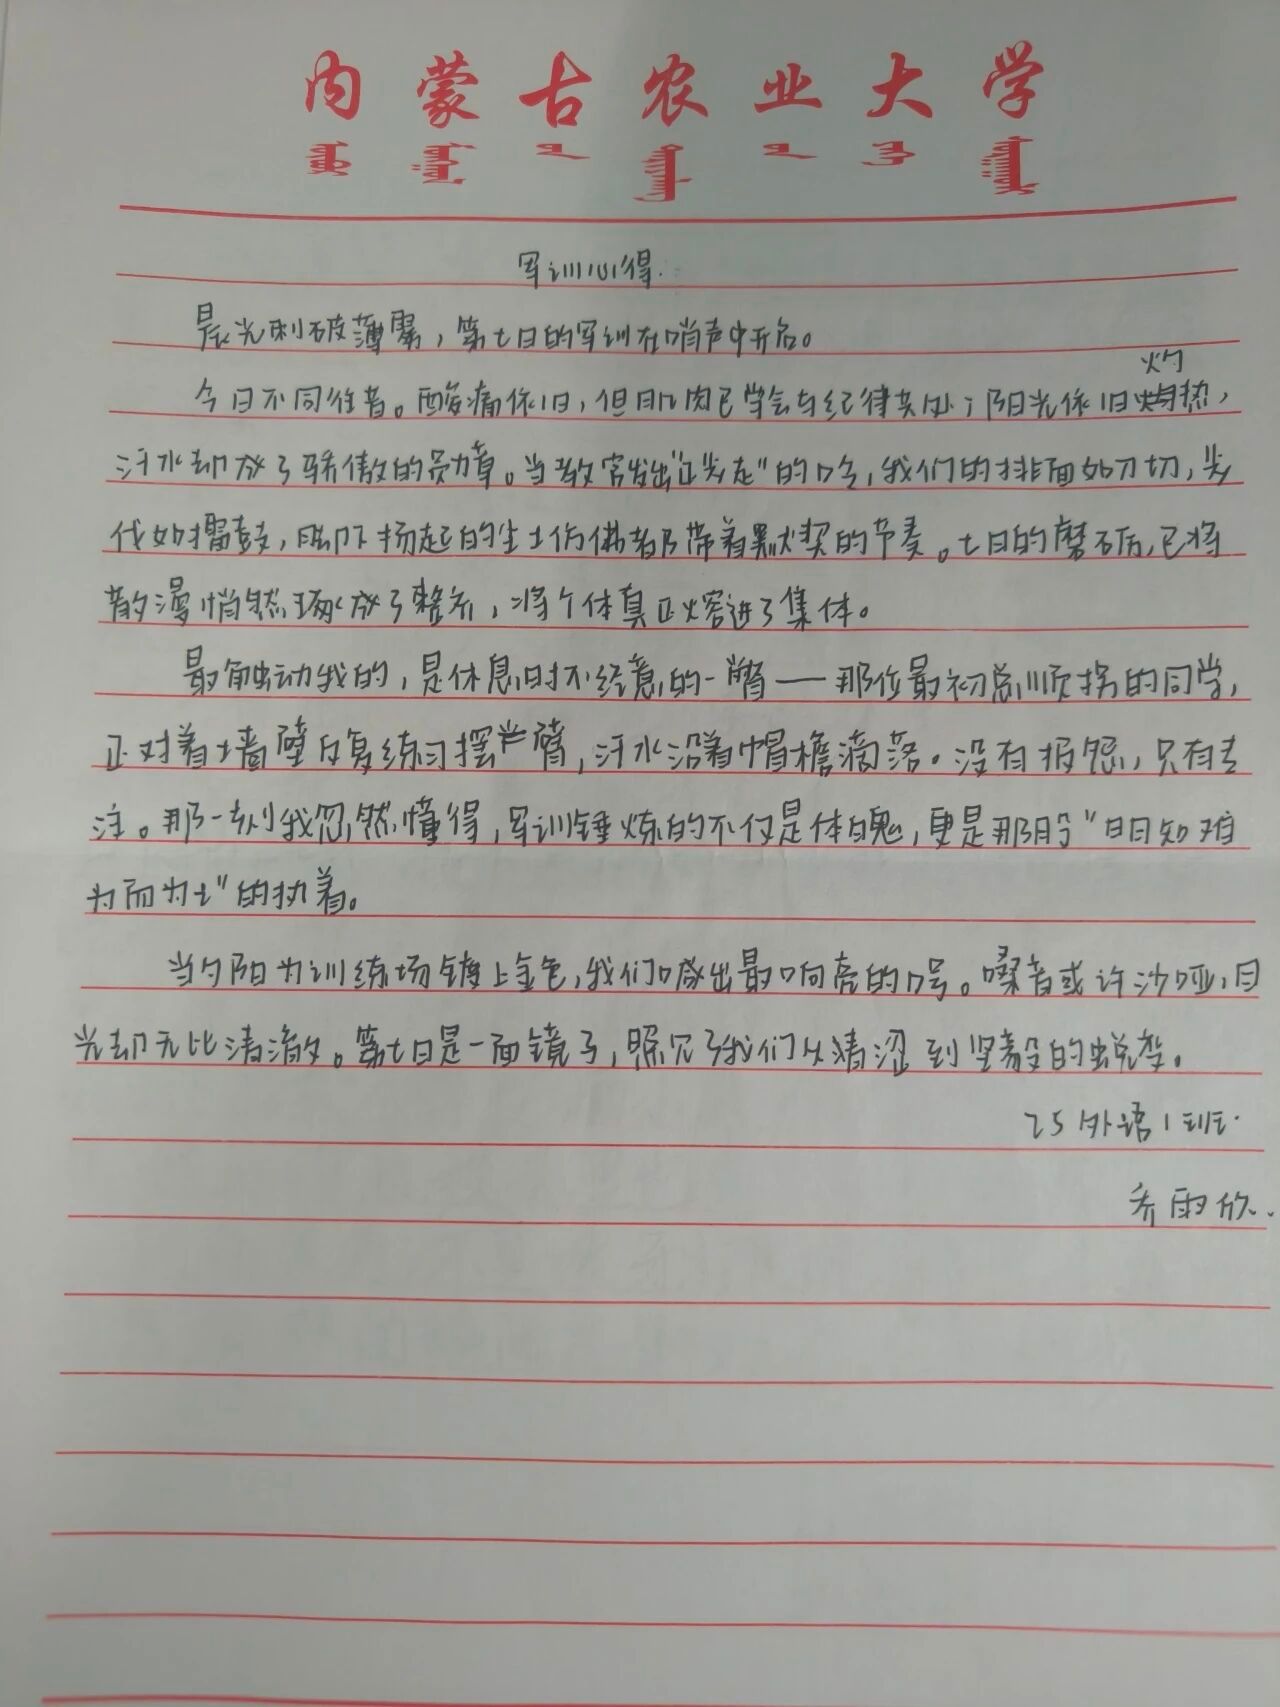 内蒙古农业大学
军训心得.
晨光刺破薄雾，第七日的军训在哨声中开启。
今日不同往昔。酸痛依旧，但肌肉已学会与纪律共处；阳光依旧灼热，
汗水却成了骄傲的勋章。当教官发出“正步走”的口令，我们的排面如刀切，步
伐如擂鼓，脚下扬起的尘土仿佛都带着默契的节奏。七日的磨砺，已将
散漫悄然琢成了整齐，将个体真正熔进了集体。
最触动我的，是休息时不经意的一瞥——那位最初总顺拐的同学，
正对着墙壁反复练习摆臂，汗水沿着帽檐滴落。没有报怨，只有专
注。那一刻我忽然懂得，军训锤炼的不仅是体魄，更是那份“明知难
为而为之”的执着。
当夕阳为训练场镀上金色，我们喊出最响亮的口号。嗓音或许沙哑，目
光却无比清澈。第七日是一面镜子，照见了我们从青涩到坚毅的蜕变。
25外语1班.
乔雨欣.